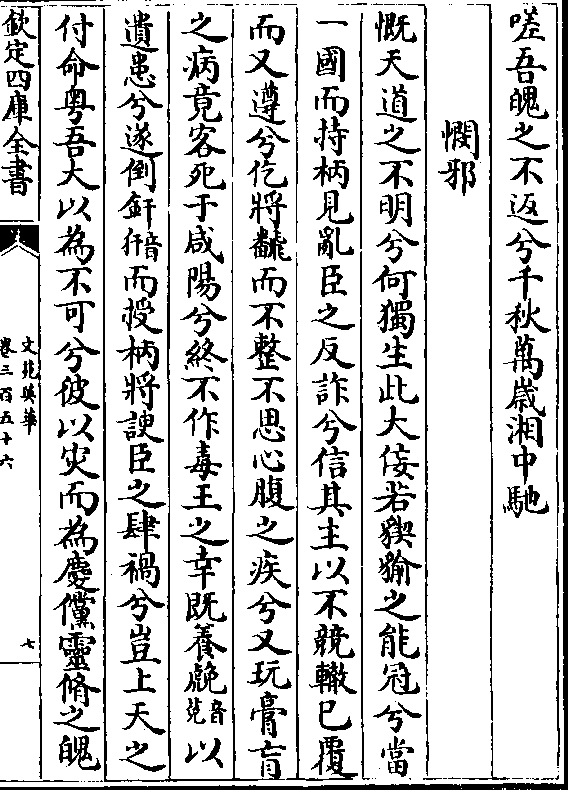 嗟吾魄之不返兮千秋萬嵗湘中馳
憫邪
慨天道之不明兮何獨生此大佞若猰㺄之能冠兮當
一國而持柄見亂臣之反詐兮信其主以不競轍已覆
而又遵兮仡將虀而不整不思心腹之疾兮又玩膏肓
之病竟客死于咸陽兮終不作毒王之幸既養㲋音㲋以
遺患兮遂倒釬音仠而授柄將諛臣之肆禍兮豈上天之
付命粤吾大以為不可兮彼以災而為慶儻靈脩之魄
欽定四庫全書
文苑英華
卷三百五十六
七